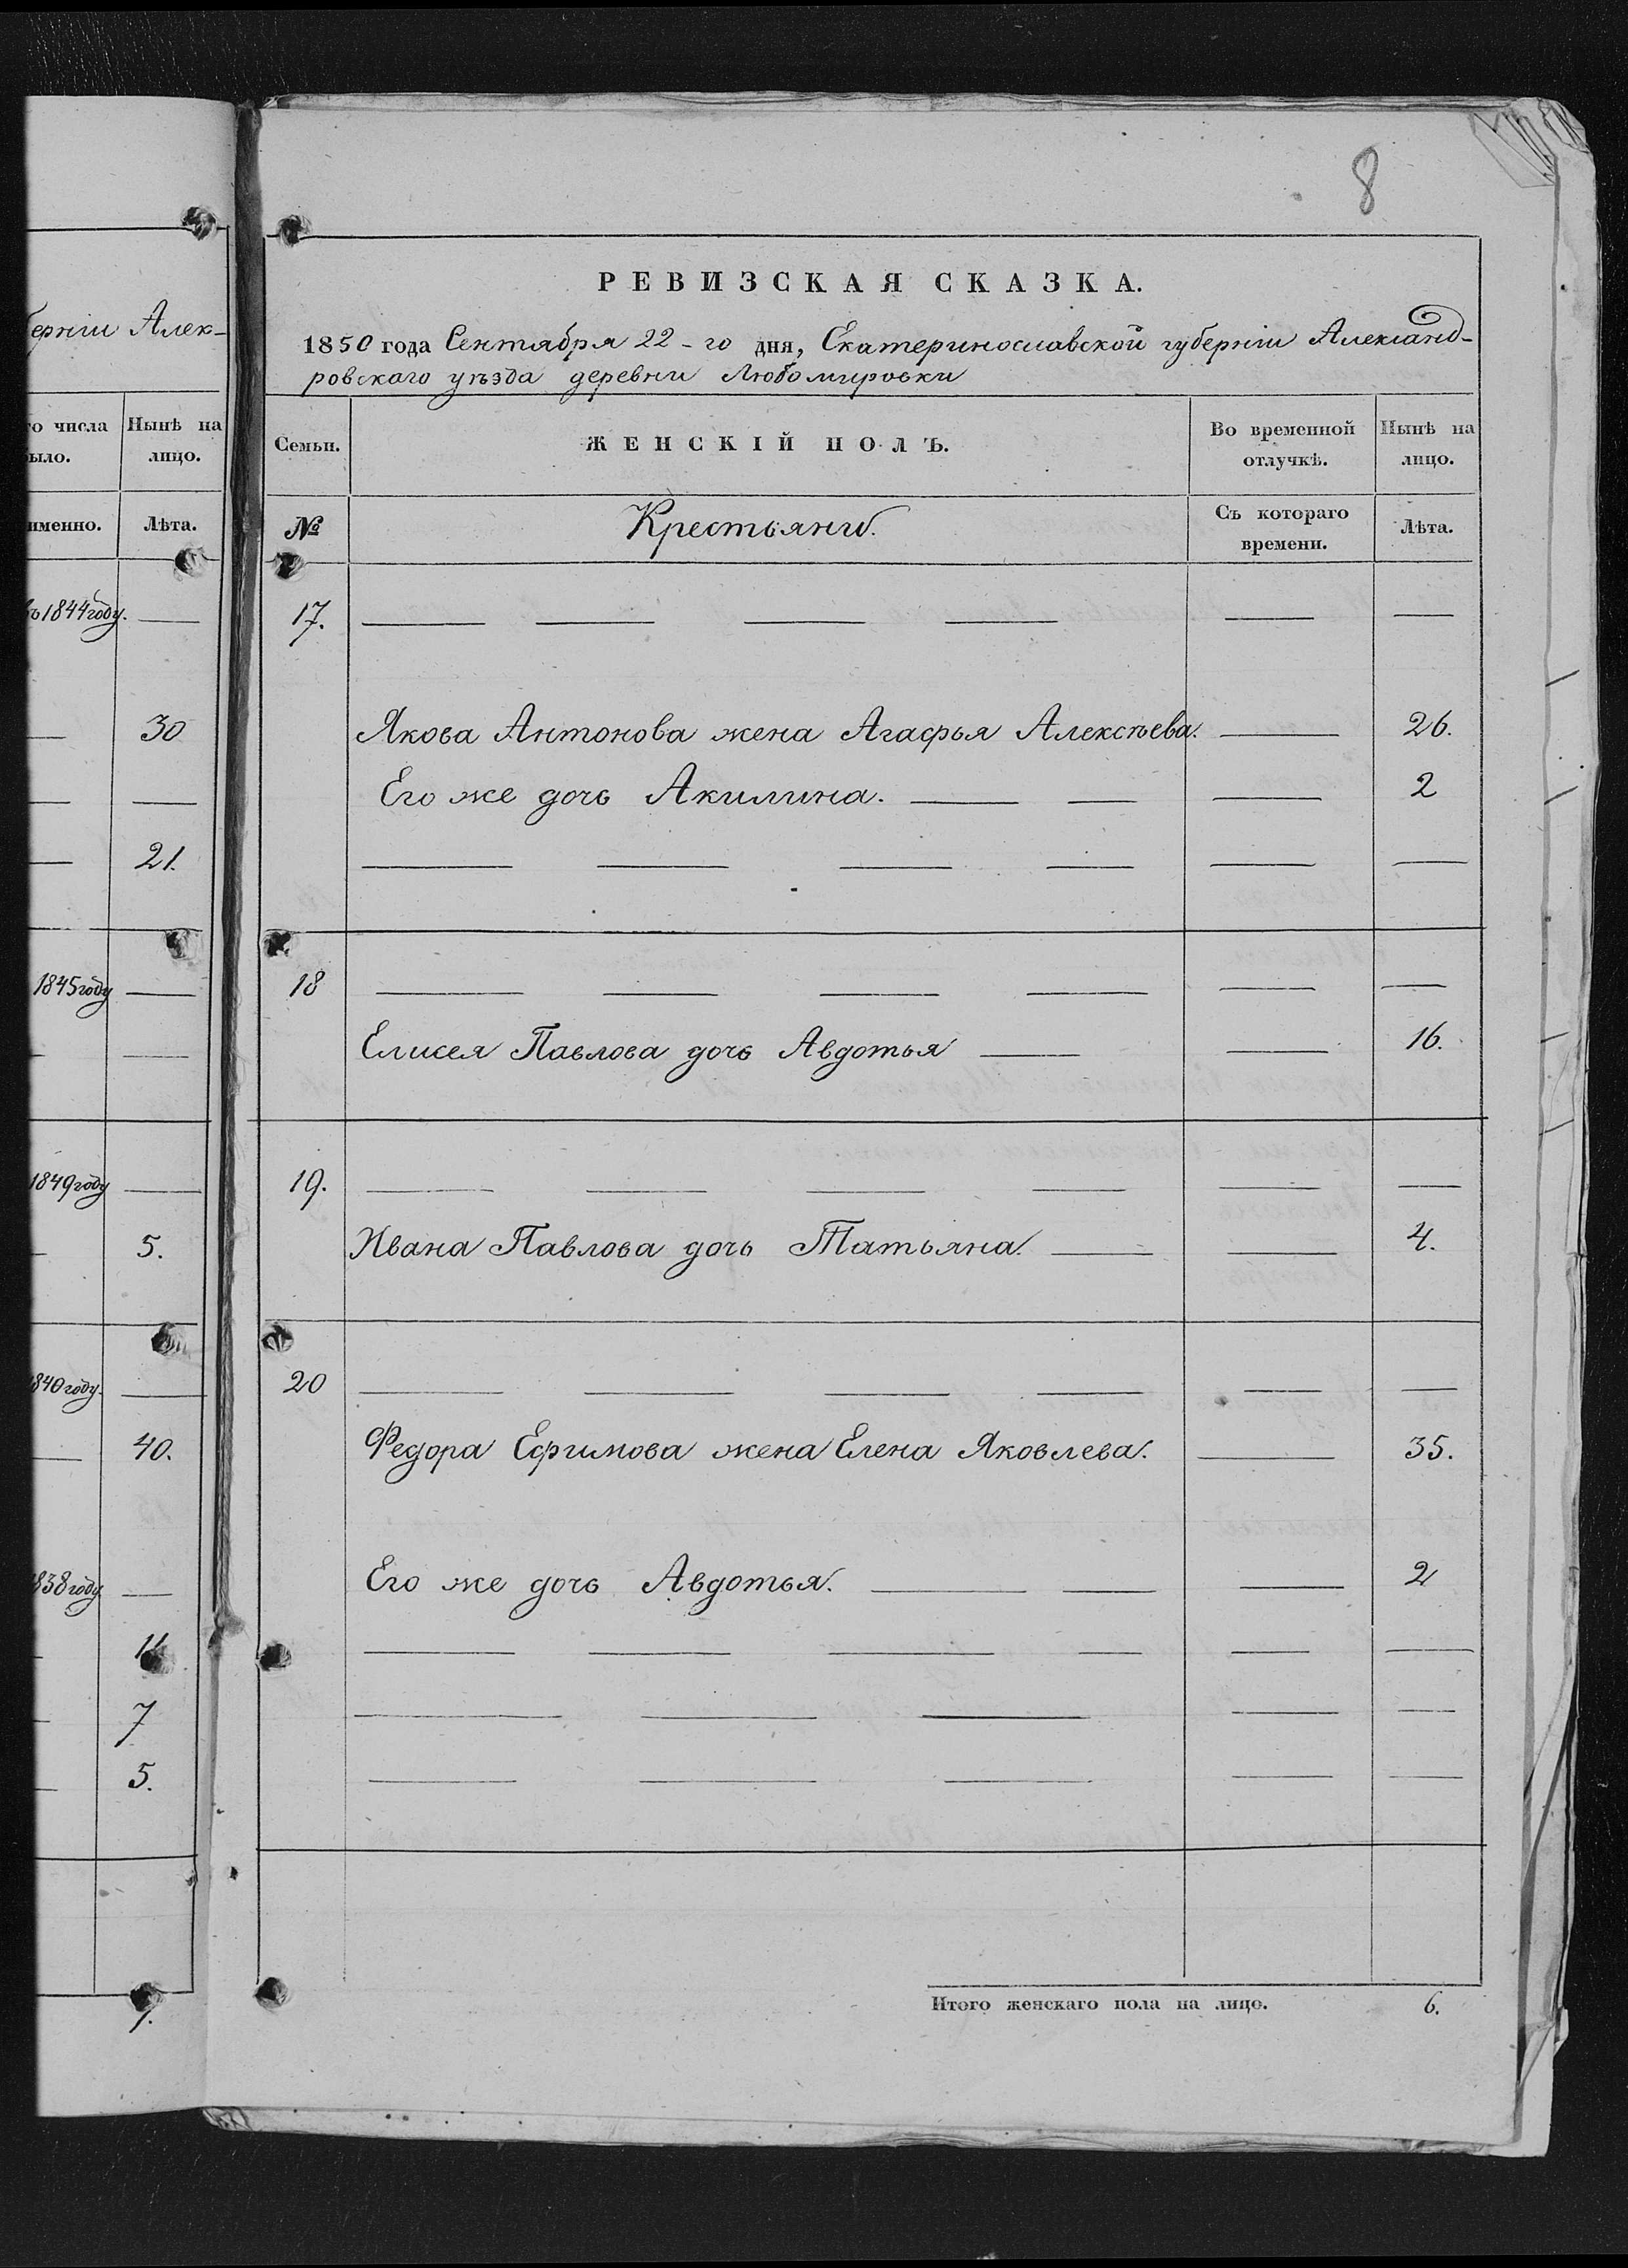 8
РЕВИЗСКАЯ СКАЗКА.
1850 года Сентября 22-го дня, Екатеринославской губерніи Александ-
ровскаго уѣзда деревни Любомировки
Семьи.
ЖЕНСКІЙ ПОЛЪ.
Во временной отлучкѣ.
Нынѣ на лицо.
№
Крестьяни.
Съ котораго времени.
Лѣта.
17. — — — — — —
Якова Антонова жена Агафья Алексѣева. — 26.
Его же дочь Акилина. — — — 2
— — — — — —
18 — — — — — —
Елисея Павлова дочь Авдотья — — 16.
19. — — — — — —
Ивана Павлова дочь Татьяна. — — 4.
20 — — — — — —
Федора Ефимова жена Елена Яковлева. — 35.
Его же дочь Авдотья. — — — 2
— — — — — —
— — — — —
— — — — —
Итого женскаго пола на лицо. 6.
ерніи Алек-
о числа
ыло.
Нынѣ на
лицо.
именно.
Лѣта.
ъ 1844 году. —
— 30
— —
— 21.
1845 году —
— —
1849 году —
— 5.
840 году. —
— 40.
838 году —
— 11
— 7
— 5.